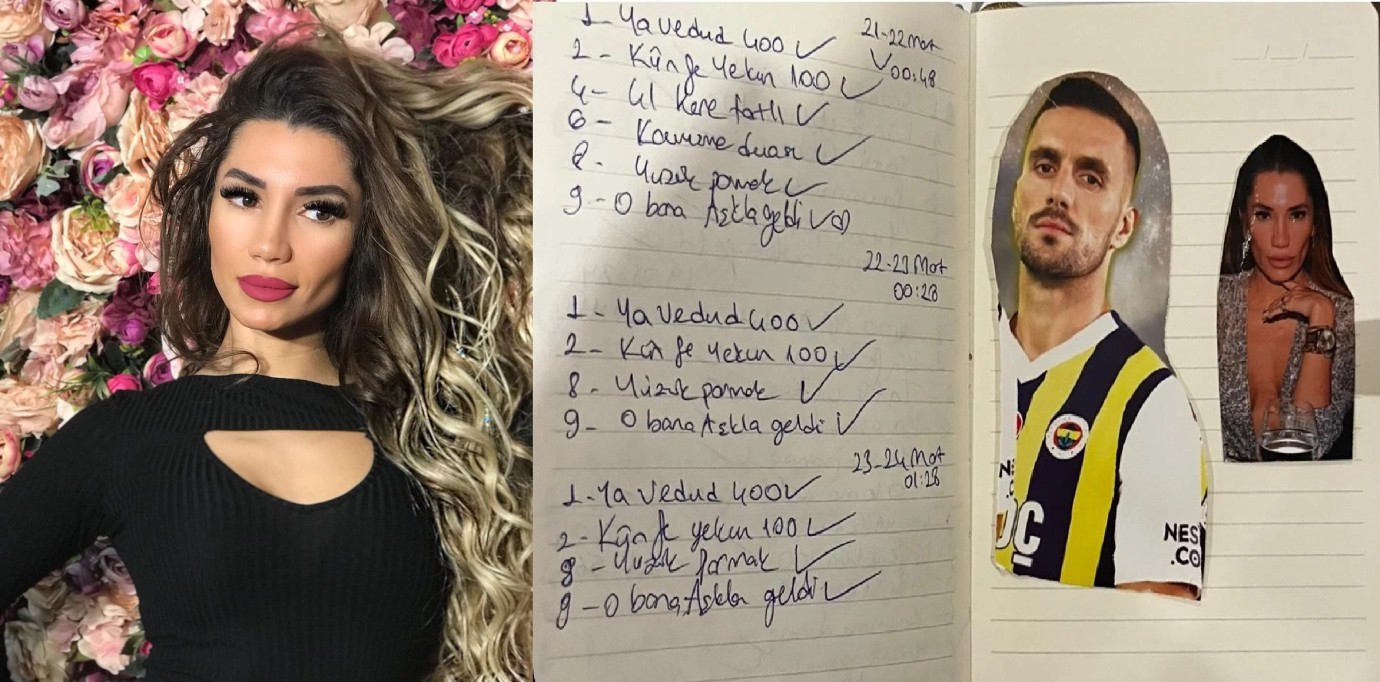 1- Ya Vedud 400 ✓
21-22 Mart
✓ 00:48
2- Kün fe Yekün 100 ✓
4- 41 kere fatlı ✓
6- Kavuşma duası ✓
8- Yüzük parmak ✓
9- O bana Aşkla geldi ✓
22-23 Mart
00:28
1- Ya Vedud 400 ✓
2- Kün fe yekün 100 ✓
8- Yüzük parmak ✓
9- O bana Aşkla geldi ✓
23-24 Mart
01:28
1- Ya Vedud 400 ✓
2- Kün fe yekün 100 ✓
8- Yüzük parmak ✓
9- O bana Aşkla geldi ✓
NES
.CO